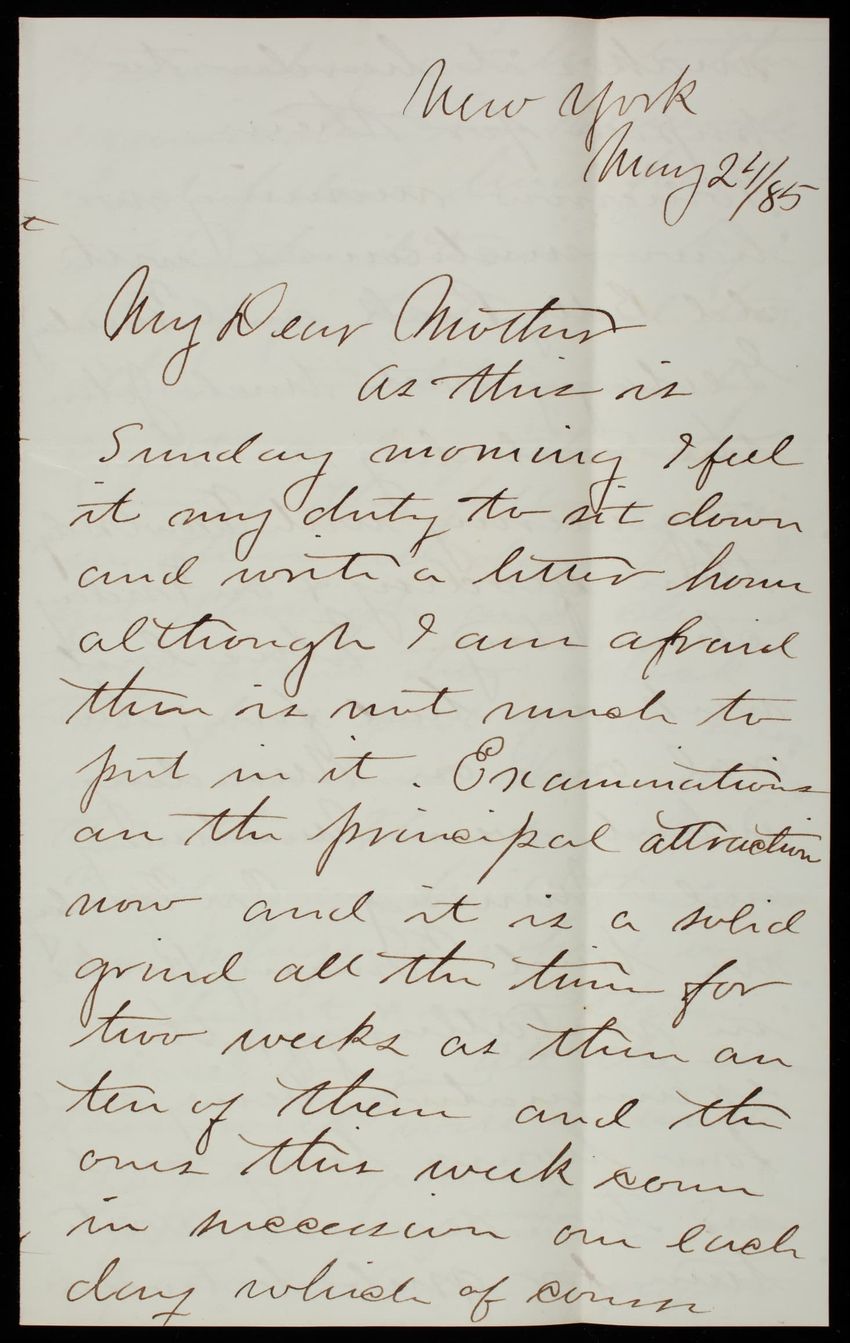 New York
May 24/85
My Dear Mother
As this is
Sunday morning I feel
it my duty to sit down
and write a letter home
although I am afraid
there is not much to
put in it. Examinations
are the principal attraction
now and it is a solid
grind all the time for
two weeks as there are
ten of them and the
ones this week come
in succession one each
day which of course